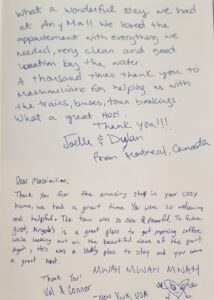 What a wonderful stay we had
at AnyMall We loved the
appartement with everything we
needed, very clean and good
location by the water
A thousand times thank you to
Massimiliano for helping us with
the trains, buses, tour bookings.
What a great Host.
Thank you!!!
Joelle & Dylan
From Montreal, Canada
Dear Massimiliano,
Thank you for the amazing stay in your cozy
home, we had a great time. You were so welcoming
and helpful. The town was so nice & peaceful. To future
guest, Angelo's is a great place to get morning coffee
while looking out on the beautiful views of the port
Again, this was a lovely place to stay and you were
a great host.
MWAH MWAH MWAH
Thank You!
Val & Connor
- New York, USA